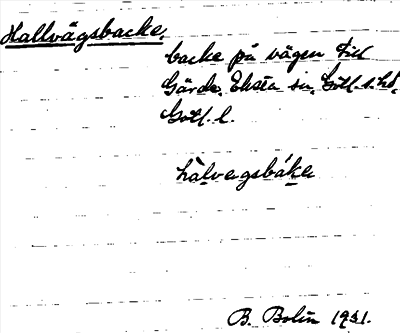 Hallvägsbacke,
backe på vägen till
Gärde, Eksta sn, Gotl. s. hd,
Gotl. l.
hàlvegsbáke
B. Bolin 1931.